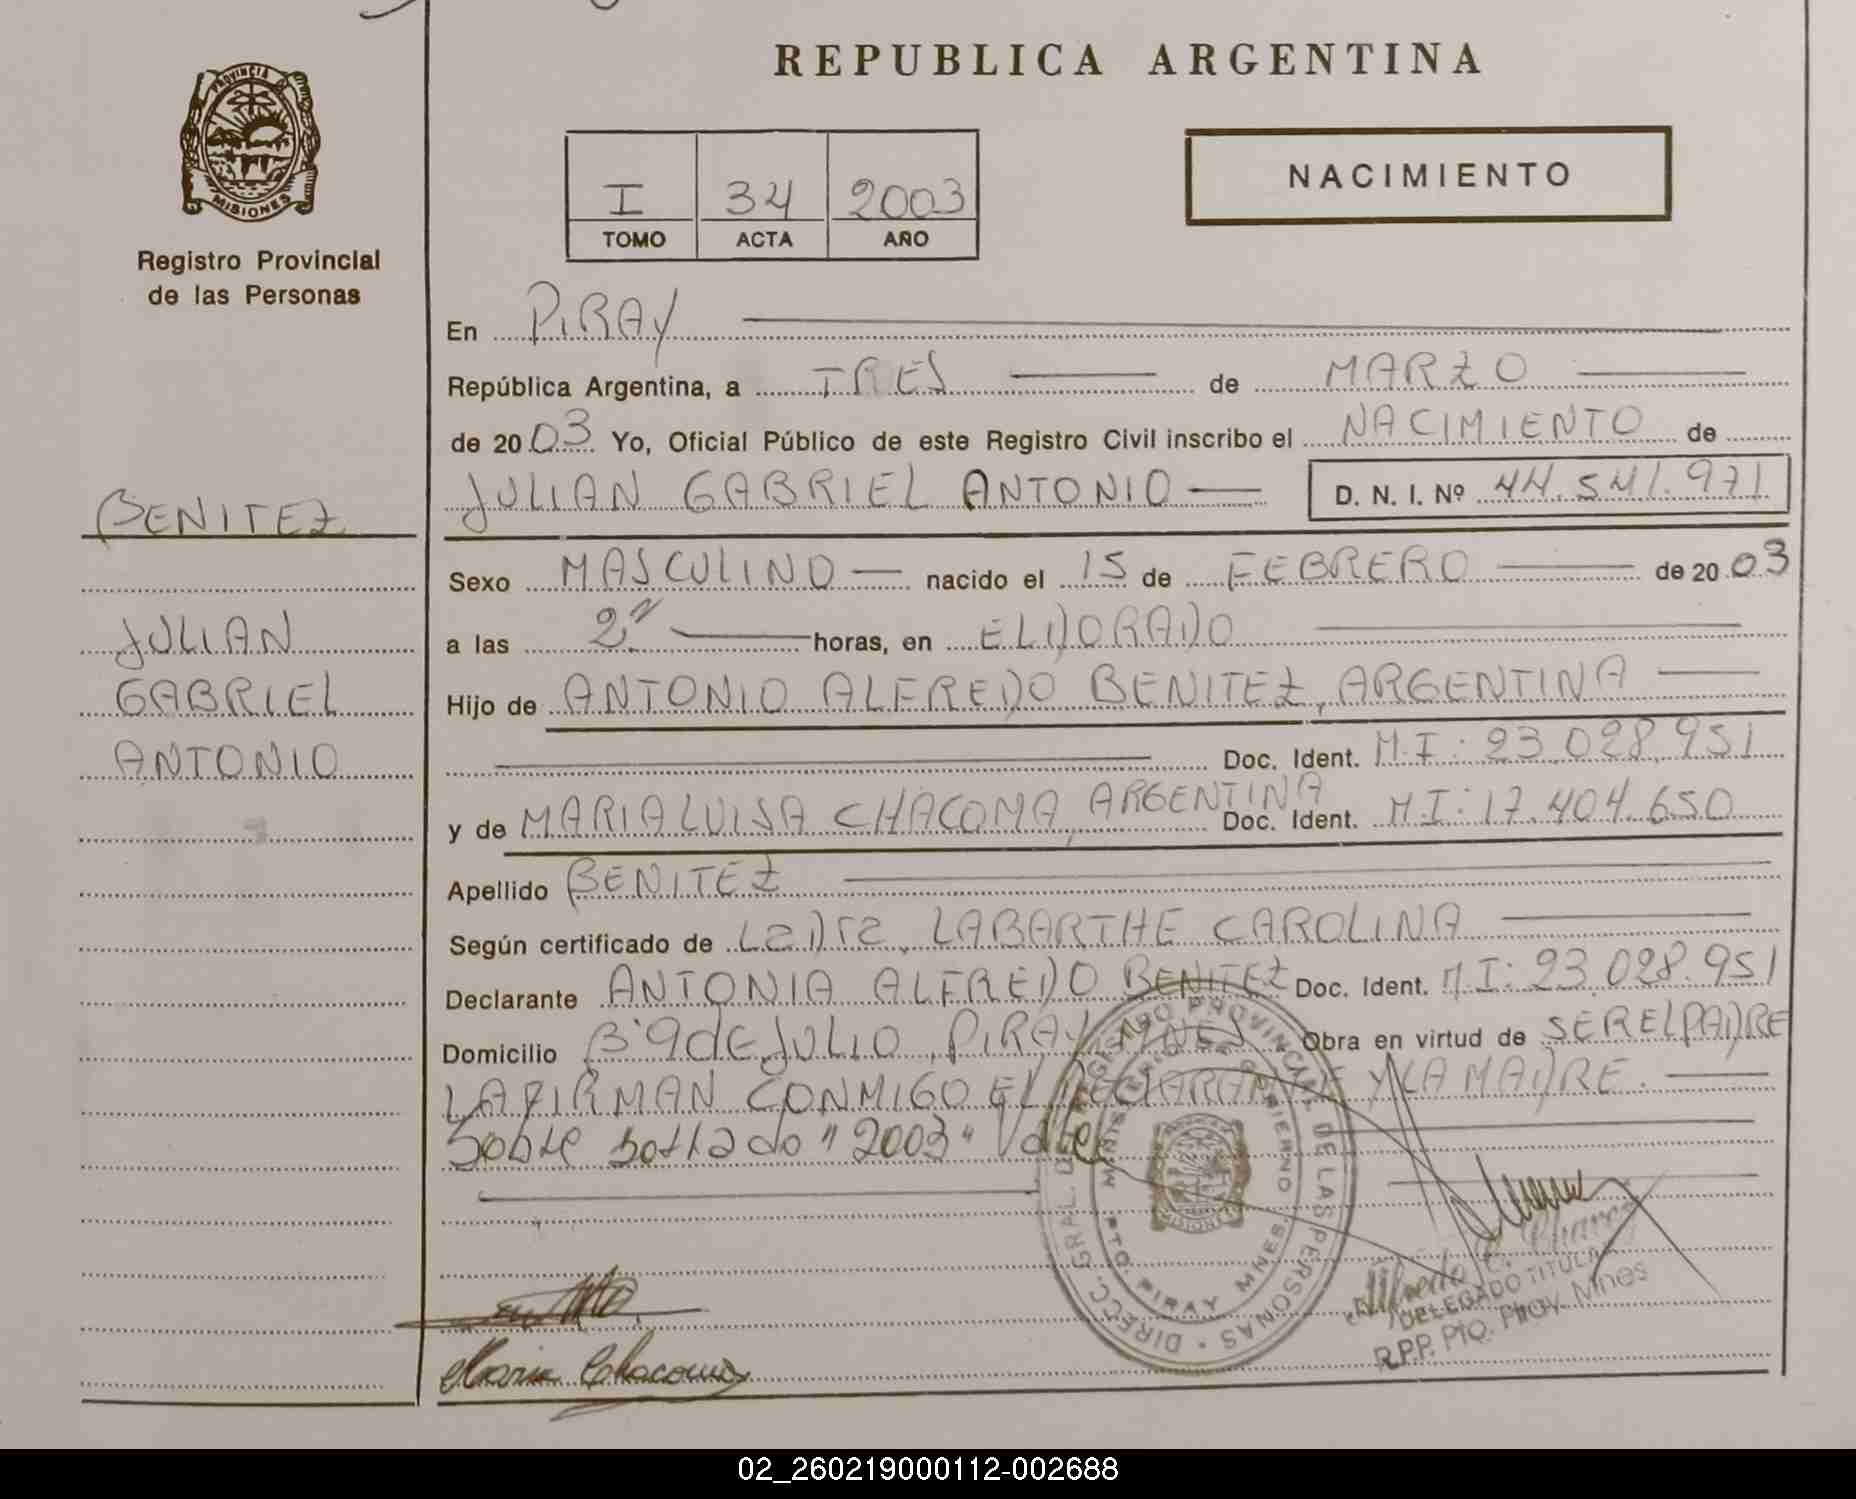 PROVINCIA DE
MISIONES
Registro Provincial
de las Personas
BENITEZ
JULIAN
GABRIEL
ANTONIO
REPUBLICA ARGENTINA
I 34 2003
TOMO ACTA AÑO
NACIMIENTO
En PIRAY
República Argentina, a TRES de MARZO
de 2003 Yo, Oficial Público de este Registro Civil inscribo el NACIMIENTO de
JULIAN GABRIEL ANTONIO D. N. I. Nº 44.541.971
Sexo MASCULINO nacido el 15 de FEBRERO de 2003
a las 2" horas, en ELDORADO
Hijo de ANTONIO ALFREDO BENITEZ, ARGENTINA
Doc. Ident. M.I: 23.028.951
y de MARIA LUISA CHACOMA, ARGENTINA Doc. Ident. M.I: 17.404.650
Apellido BENITEZ
Según certificado de LABARTHE CAROLINA
Declarante ANTONIA ALFREDO BENITEZ Doc. Ident. M.I: 23.028.951
Domicilio Bº 9 DE JULIO, PIRAY MNES. Obra en virtud de SER EL PADRE
LA FIRMAN CONMIGO EL DECLARANTE Y LA MADRE.
Sobre borrado "2003" Vale
DIRECC. GRAL. DEL REGISTRO PROVINCIAL DE LAS PERSONAS
MINISTERIO DE GOBIERNO
PTO. PIRAY MNES.
MISIONES
DELEGADO TITULAR
R.P.P. Pto. Piray. Mnes
Maria Chacoma
02_260219000112-002688